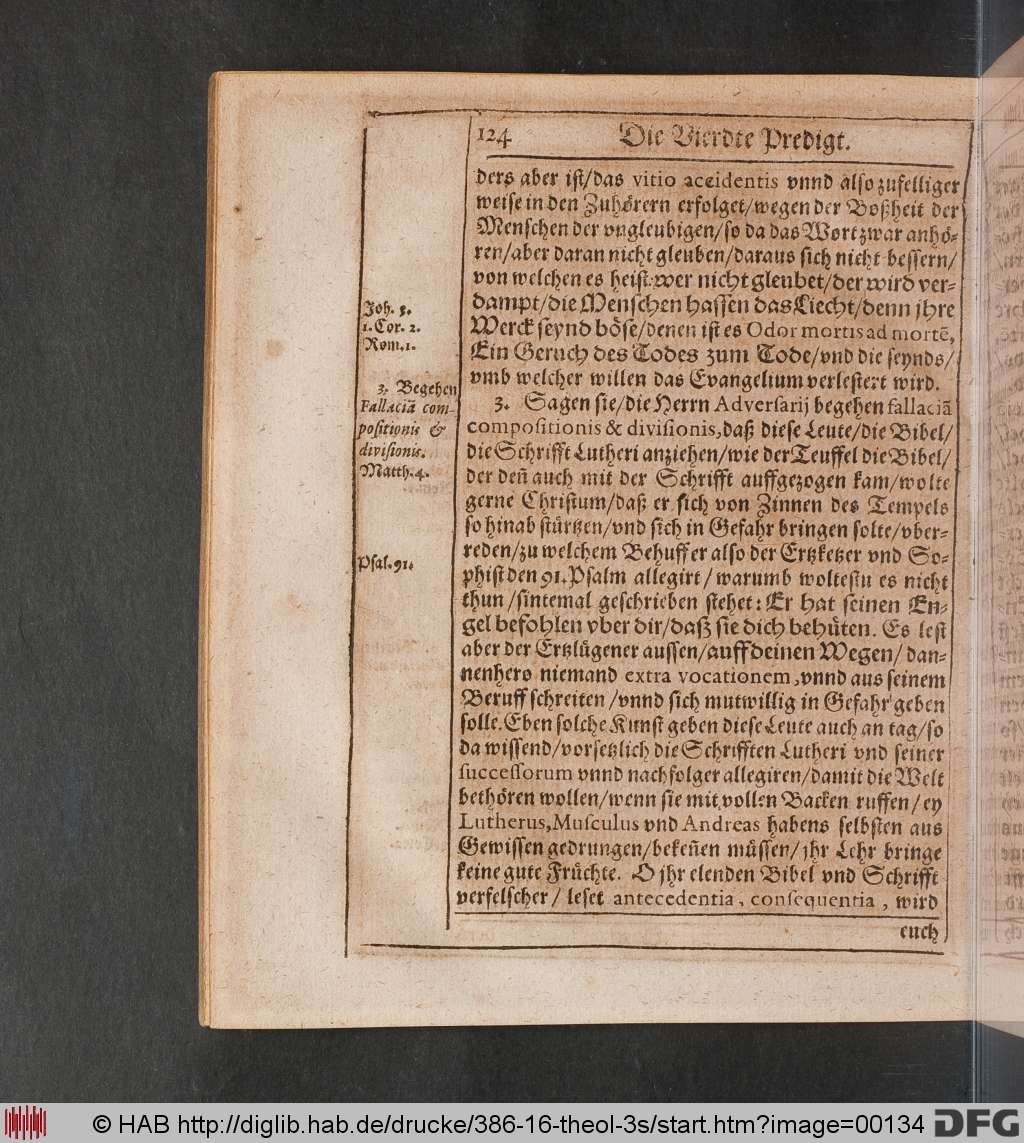 124 Die Vierdte Predigt.
ders aber ist/das vitio accidentis vnnd also zufelliger
weise in den Zuhörern erfolget/wegen der Boßheit der
Menschen der vngleubigen/so da das Wort zwar anhö-
ren/aber daran nicht gleuben/daraus sich nicht bessern/
von welchen es heist: wer nicht gleubet/der wird ver-
dampt/die Menschen hassen das Liecht/denn jhre
Werck seynd böse/denen ist es Odor mortis ad mortē,
Ein Geruch des Todes zum Tode/vnd die seynds/
vmb welcher willen das Evangelium verlestert wird.
3. Sagen sie/die Herrn Adversarij begehen fallaciā
compositionis & divisionis, daß diese Leute/die Bibel/
die Schrifft Lutheri anziehen/wie der Teuffel die Bibel/
der deñ auch mit der Schrifft auffgezogen kam/wolte
gerne Christum/daß er sich von Zinnen des Tempels
so hinab stürtzen/vnd sich in Gefahr bringen solte/vber-
reden/zu welchem Behuff er also der Ertzketzer vnd So-
phist den 91. Psalm allegirt/warumb woltestu es nicht
thun/sintemal geschrieben stehet: Er hat seinen En-
gel befohlen vber dir/daß sie dich behüten. Es lest
aber der Ertzlügener aussen/auff deinen Wegen/dan-
nenhero niemand extra vocationem, vnnd aus seinem
Beruff schreiten/vnnd sich mutwillig in Gefahr geben
solle. Eben solche Kunst geben diese Leute auch an tag/so
da wissend/vorsetzlich die Schrifften Lutheri vnd seiner
successorum vnnd nachfolger allegiren/damit die Welt
bethören wollen/wenn sie mit vollen Backen ruffen/ey
Lutherus, Musculus vnd Andreas habens selbsten aus
Gewissen gedrungen/bekeñen müssen/jhr Lehr bringe
keine gute Früchte. O jhr elenden Bibel vnd Schrifft
verfelscher/leset antecedentia, consequentia, wird
euch
Joh. 3.
1. Cor. 2.
Rom. 1.
3. Begehen
Fallaciā com-
positionis &
divisionis.
Matth. 4.
Psal. 91.
© HAB http://diglib.hab.de/drucke/386-16-theol-3s/start.htm?image=00134
DFG